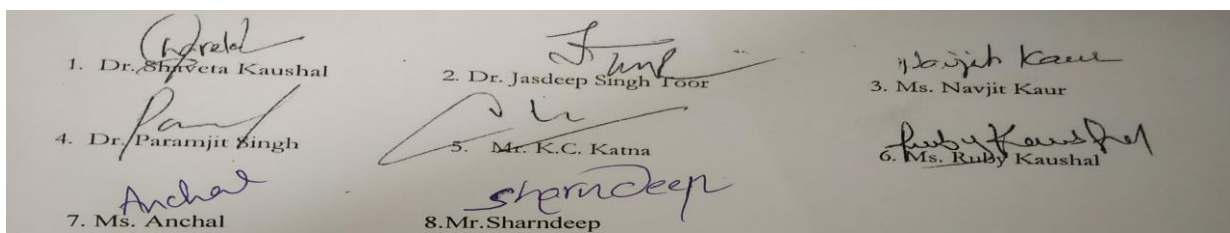 1. Dr. Shaveta Kaushal 2. Dr. Jasdeep Singh Toor 3. Ms. Navjit Kaur
Navjit Kaur
4. Dr. Paramjit Singh 5. Mr. K.C. Katna 6. Ms. Ruby Kaushal
Ruby Kaushal
Anchal Sharndeep
7. Ms. Anchal 8.Mr.Sharndeep